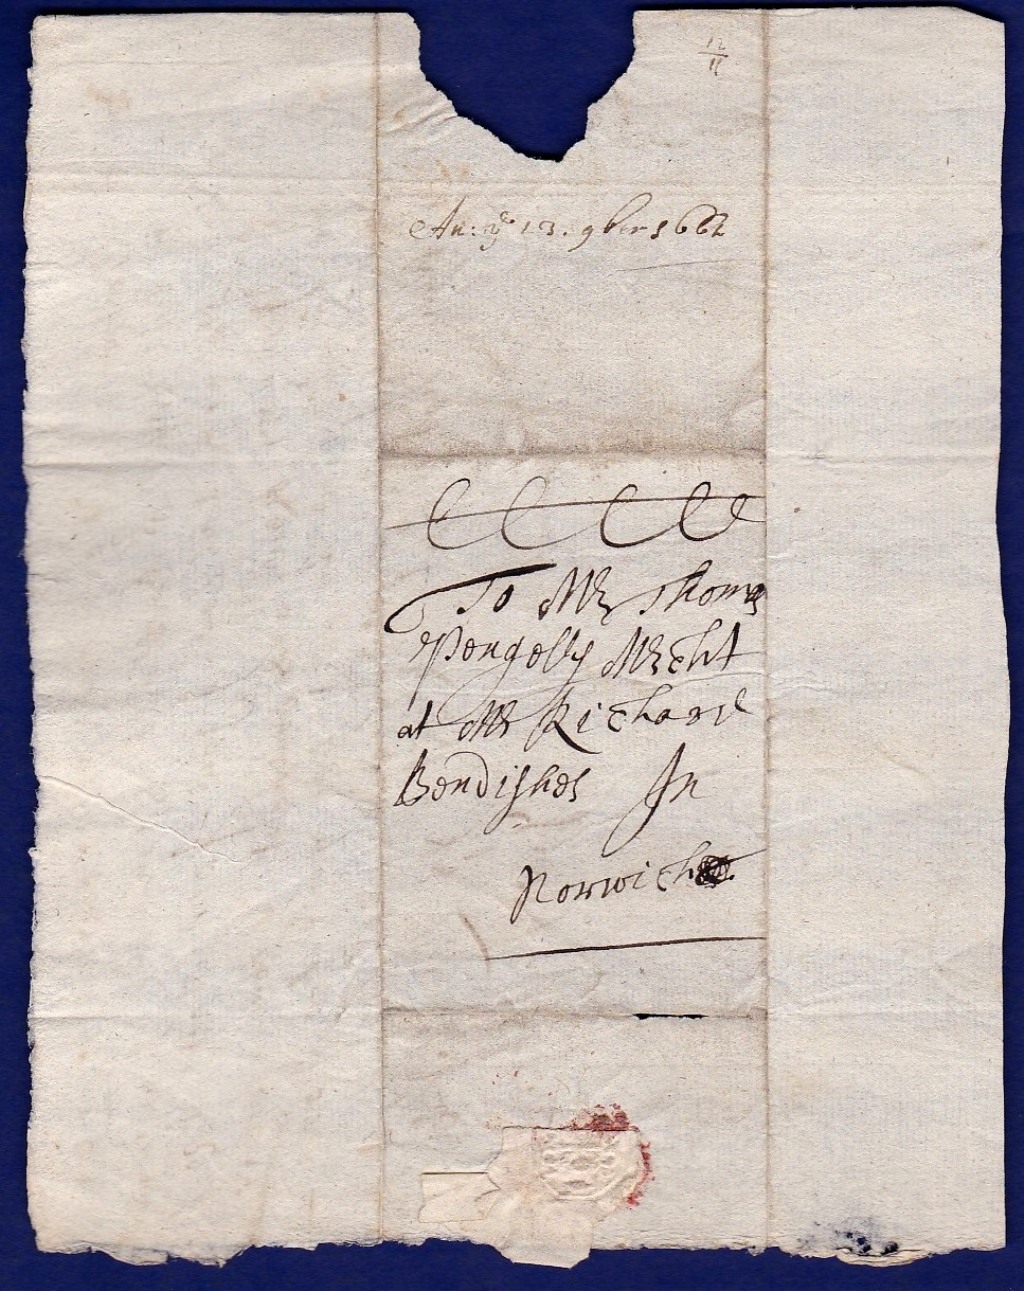 12
11
An: yᵉ 13. 9ber 1662
To Mr Thomas
Pengelly Mrcht
at Mr Richard
Bendishes In
Norwich